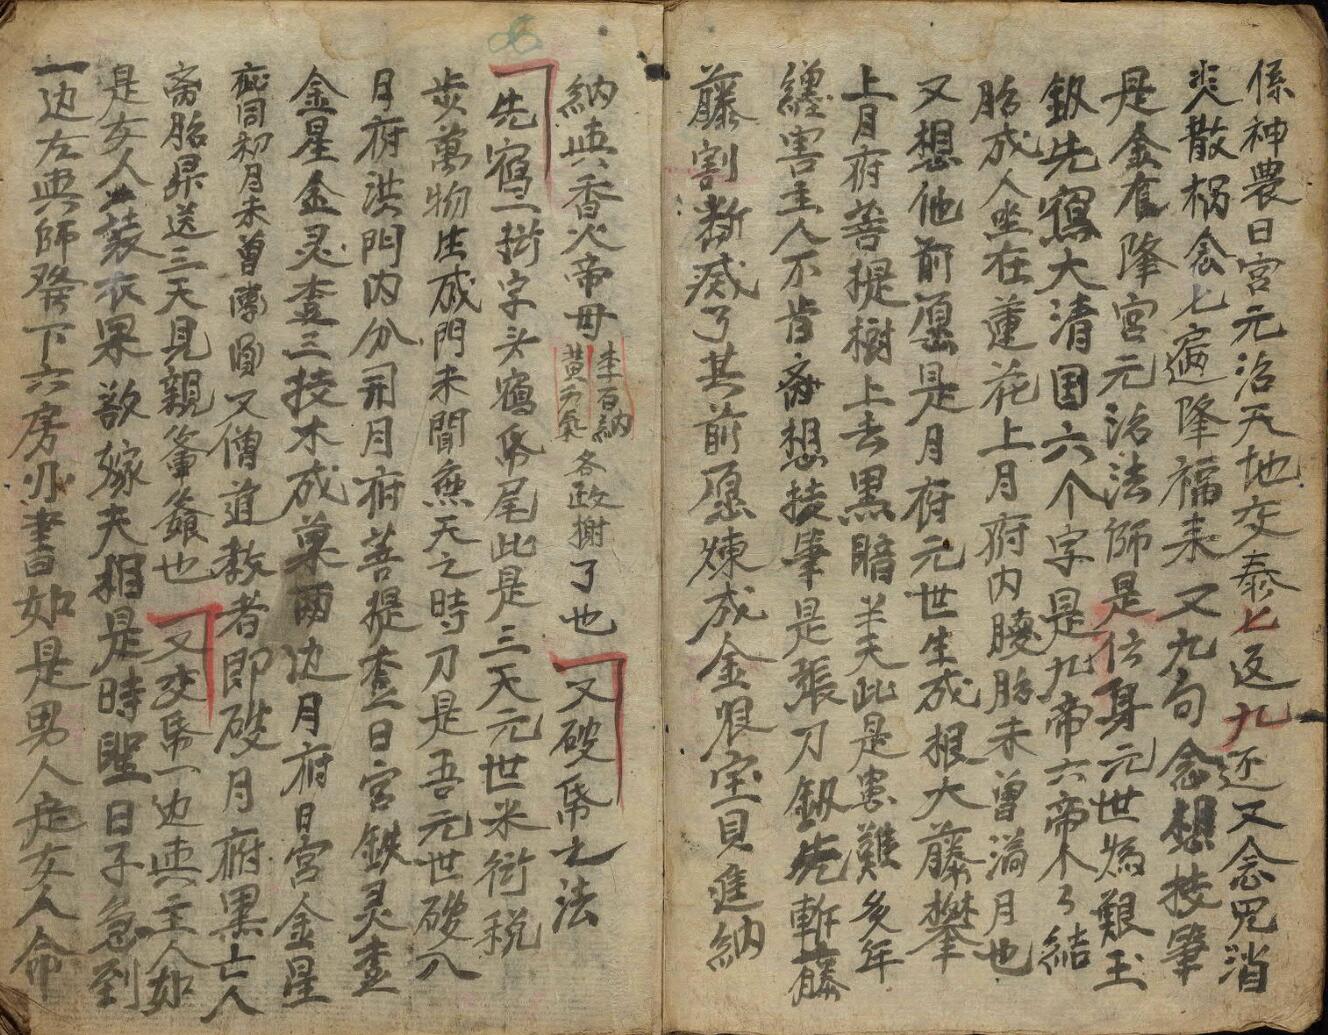 係神農日宮元治天地交泰七返九还又念咒消
災散禍念七遍降福来又九句念想接筆
是金夲降宮元治法師是仏身元世為艱玉
釼先寫大清国六个字是九帝六帝木了結
胎成人坐在蓮花上月府内腰胎未曾滿月也
又想他前愿是月府元世生成根大藤攀
上月府菩提樹上去黑暗半天此是患難多年
纏害主人不肯斎想接筆是張刀釼先斬藤
藤割断滅了其前愿煉成金銀宝貝進納
納典香火帝母李百納黄万氣各政榭了也又破吊之法
先寫一衙字头寫吊尾此是三天元世米衙税
步萬物生成門未聞無天之時刀是吾元世破八
月府洪門内分開月府菩提查日宮鉄灵查
金星金灵查三技木成菓兩边月府日宮金星
疵同初月未曾團圓又僧道教者即破月府黒亡人
斎胎昇送三天見親簞籛也又交吊一边典主人如
是女人裝衣果欲嫁夫相是時聖日子急到
一边左典師発下六房办書如是男人走女人命